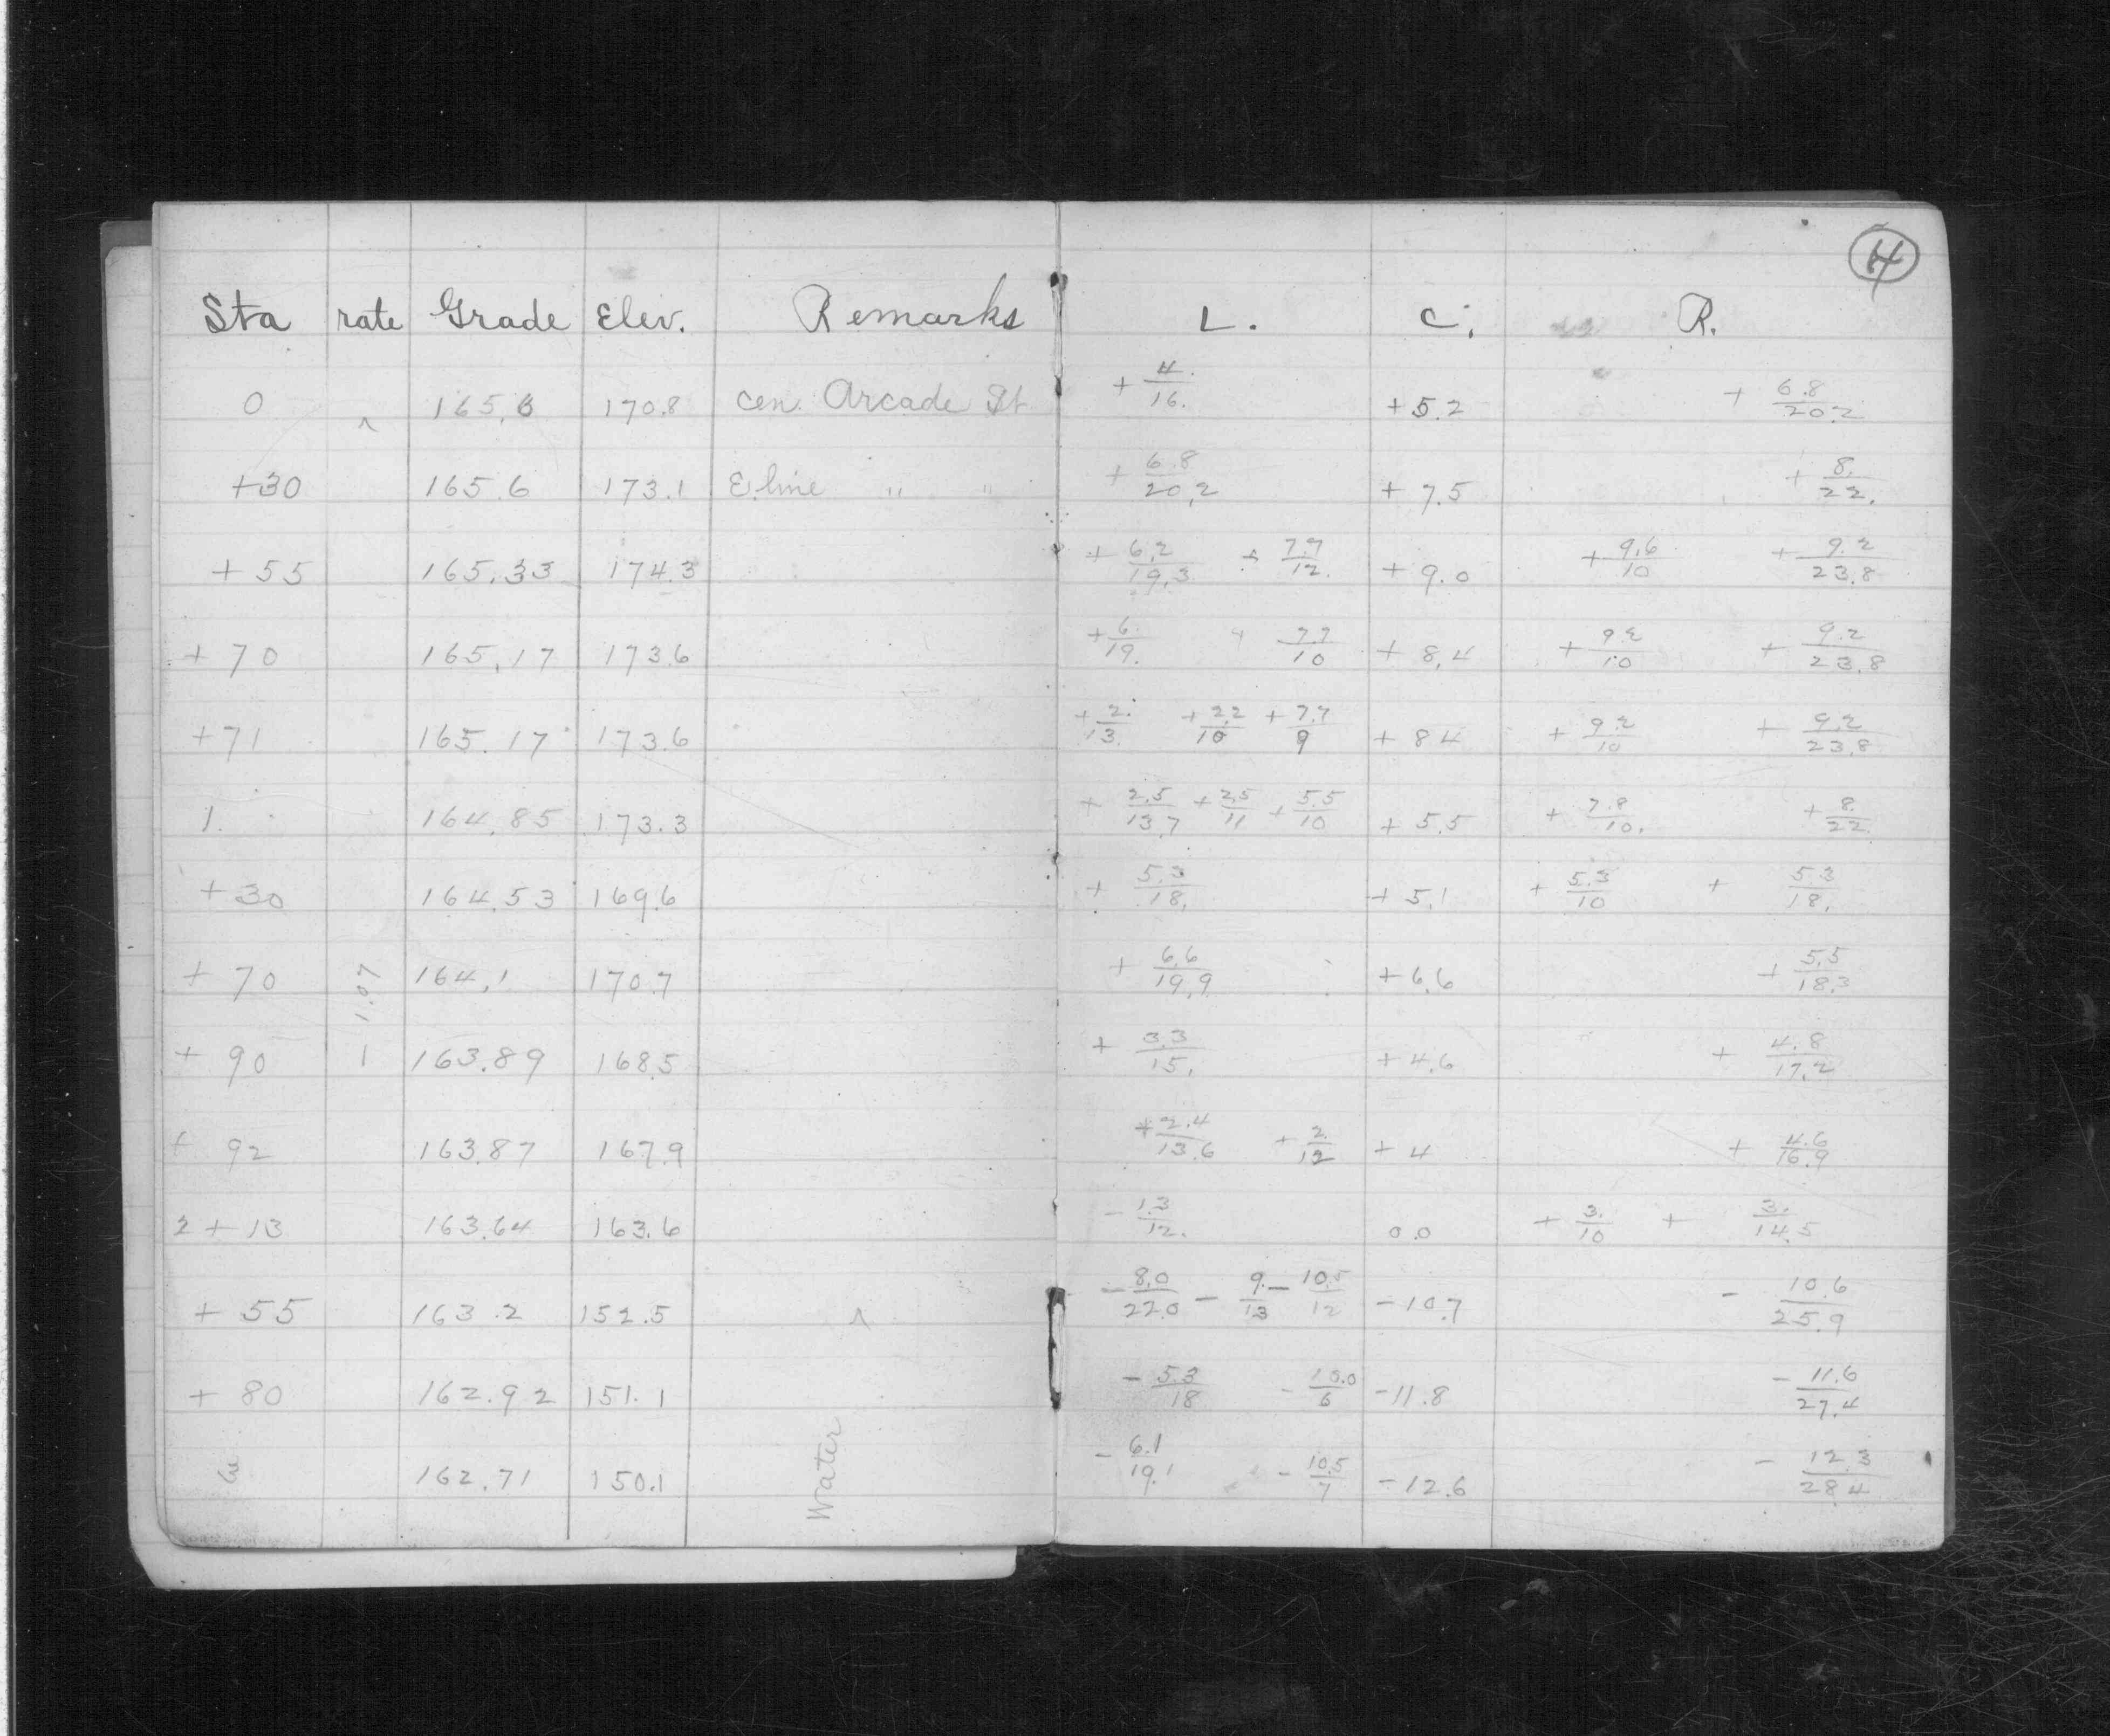 4
Sta rate Grade Elev. Remarks L. C. R.
0 165.6 170.8 cen. Arcade St + 4./16. +5.2 + 6.8/20.2
+30 165.6 173.1 E. line " " + 6.8/20.2 + 7.5 + 8./22.
+ 55 165.33 174.3 + 6.2/19.3 + 7.7/12. + 9.0 + 9.6/10 + 9.2/23.8
+ 70 165.17 173.6 + 6./19. + 7.7/10 + 8.4 + 9.2/10 + 9.2/23.8
+71 165.17 173.6 + 2./13. + 2.2/10 + 7.7/9 + 8.4 + 9.2/10 + 9.2/23.8
1. 164.85 173.3 + 2.5/13.7 + 2.5/11 + 5.5/10 + 5.5 + 7.8/10. + 8./22.
+ 30 164.53 169.6 + 5.3/18. + 5.1 + 5.3/10 + 5.3/18.
+ 70 1.07 164.1 170.7 + 6.6/19.9 +6.6 + 5.5/18.3
+ 90 1 163.89 168.5 + 3.3/15. +4.6 + 4.8/17.2
+ 92 163.87 167.9 + 2.4/13.6 + 2./12 + 4 + 4.6/16.9
2 + 13 163.64 163.6 - 1.3/12. 0.0 + 3./10 + 3./14.5
+ 55 163.2 152.5 - 8.0/22.0 - 9./13 - 10.5/12 -10.7 - 10.6/25.9
+ 80 162.92 151.1 - 5.3/18 - 10.0/6 -11.8 - 11.6/27.4
3 162.71 150.1 Water - 6.1/19.1 - 10.5/7 -12.6 - 12.3/28.4